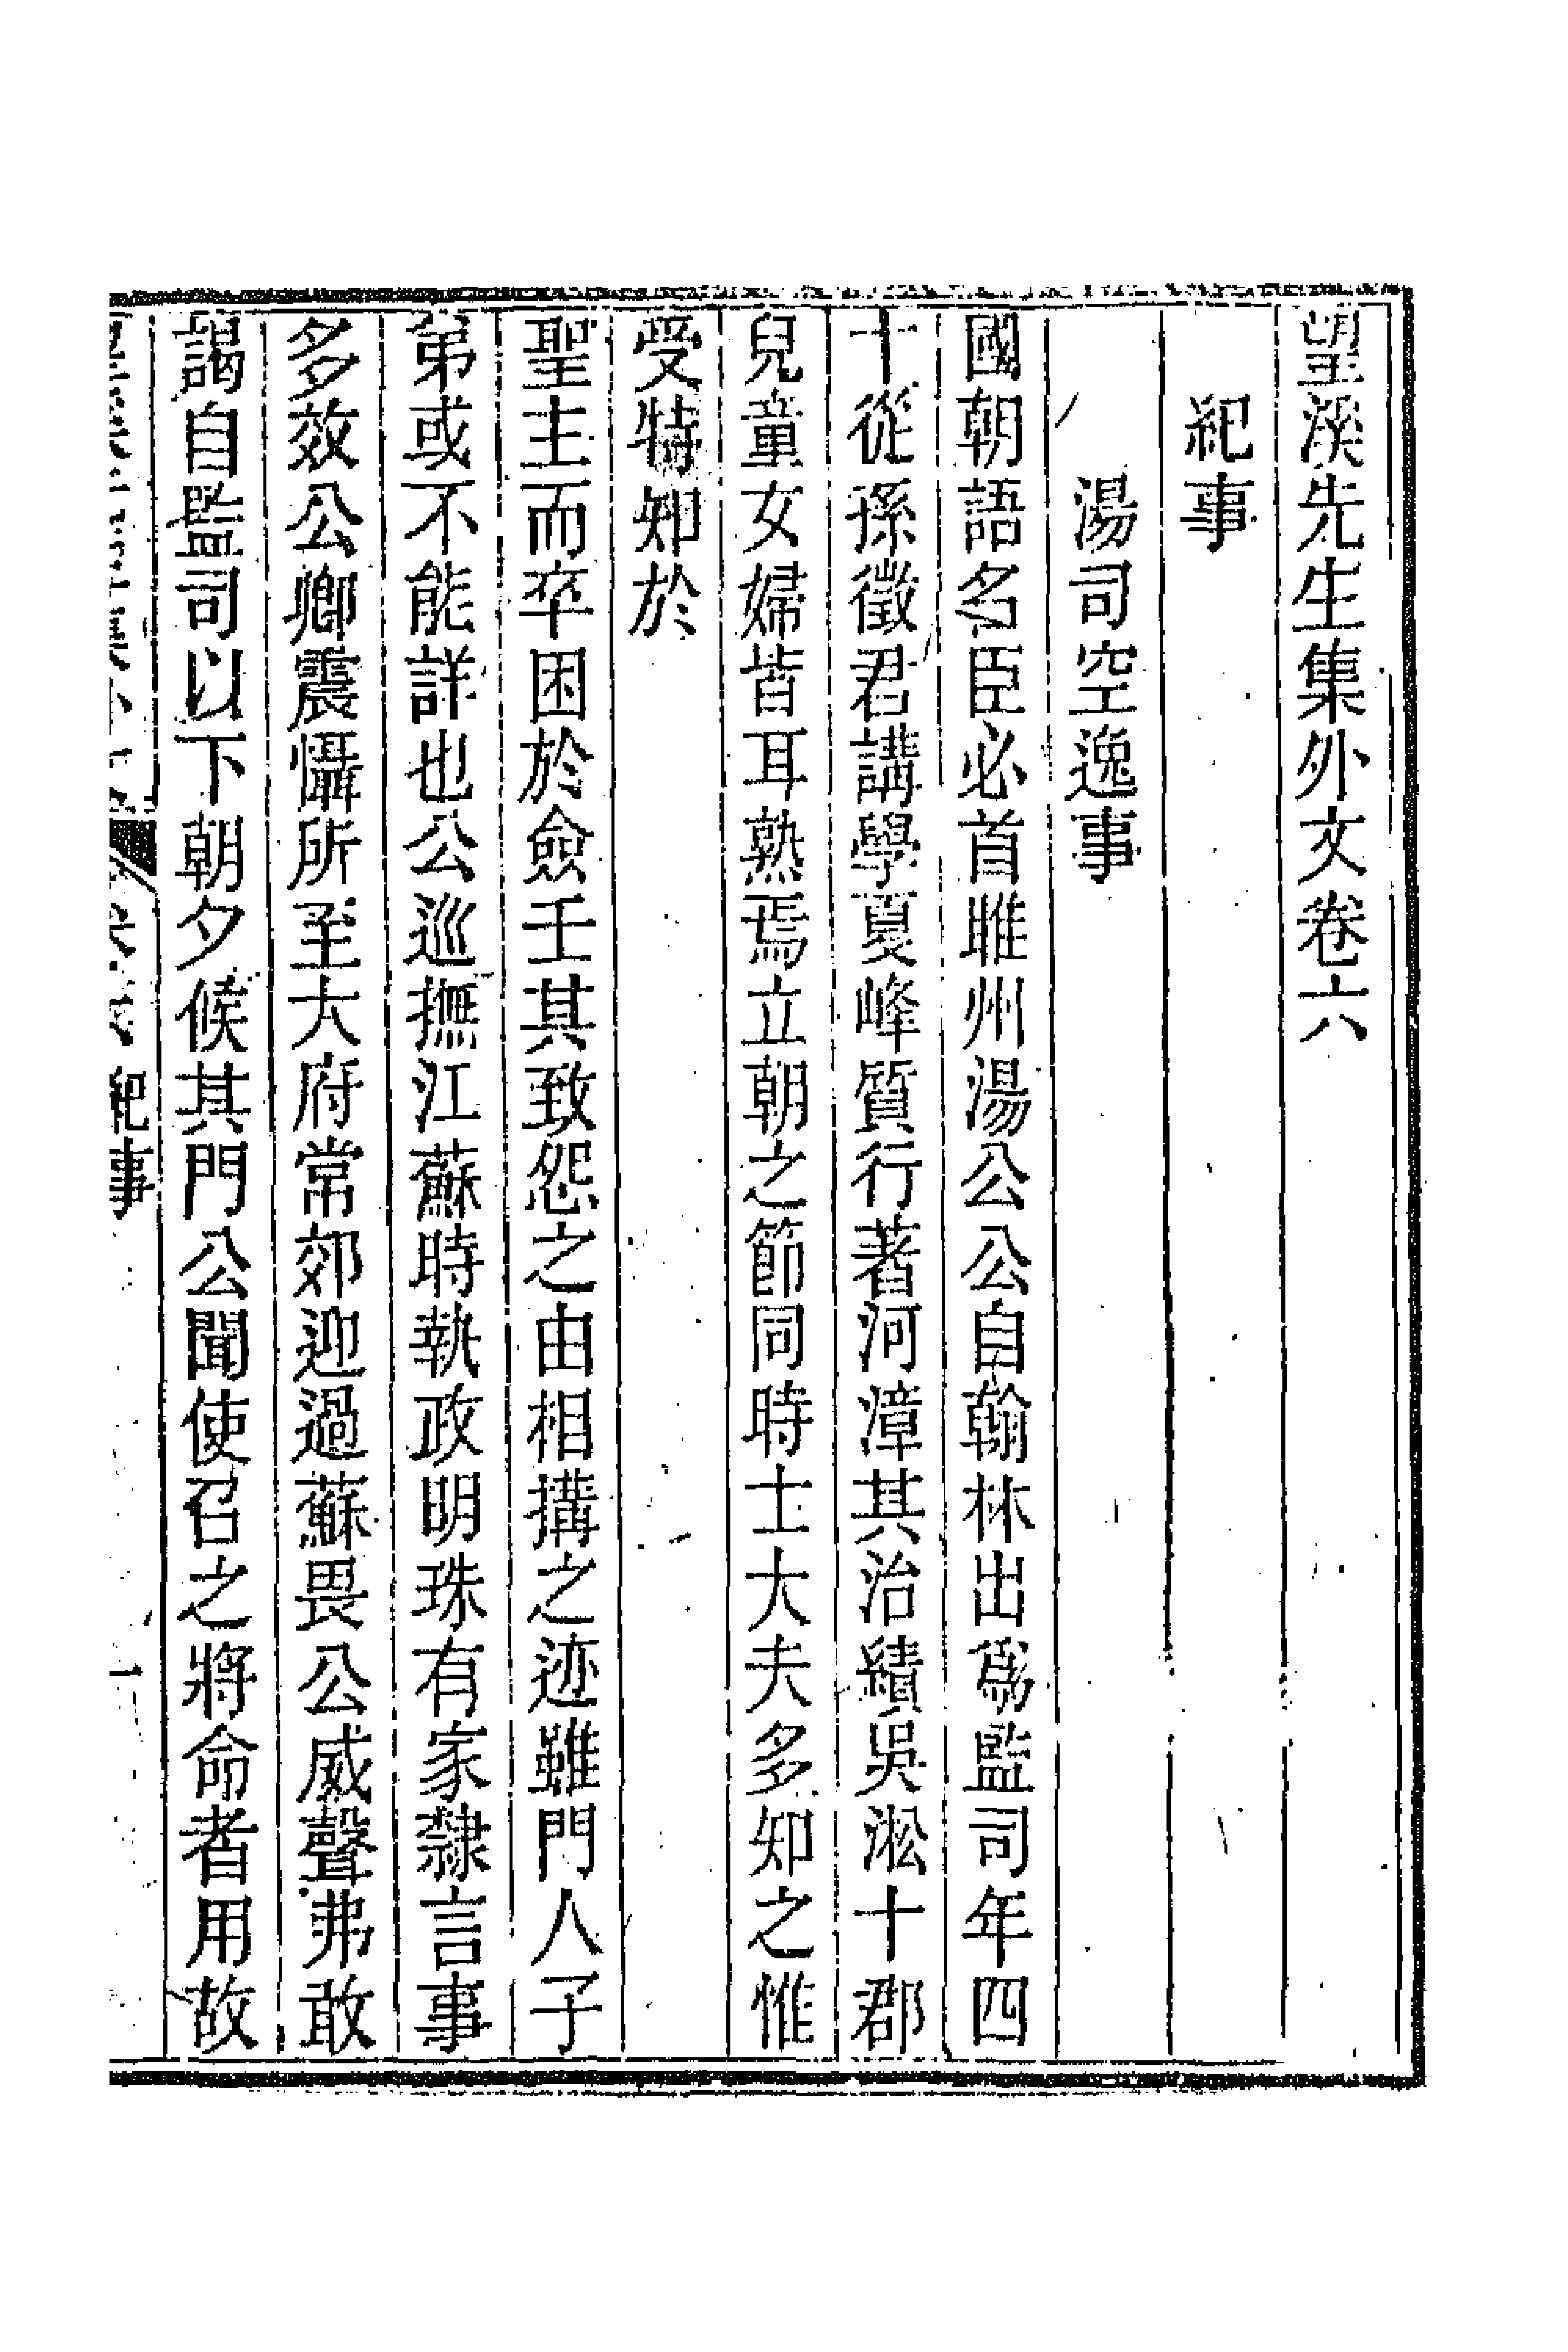 望溪先生集外文卷六
紀事
湯司空逸事
國朝語名臣必首睢州湯公公自翰林出爲監司年四
十從孫徵君講學夏峰質行著河漳其治績吳淞十郡
兒童女婦皆耳熟焉立朝之節同時士大夫多知之惟
受特知於
聖主而卒困於僉壬其致怨之由相搆之迹雖門人子
弟或不能詳也公巡撫江蘇時執政明珠有家隸言事
多效公卿震懾所至大府常郊迎過蘇畏公威聲弗敢
謁自監司以下朝夕候其門公聞使召之將命者用故
紀事
一